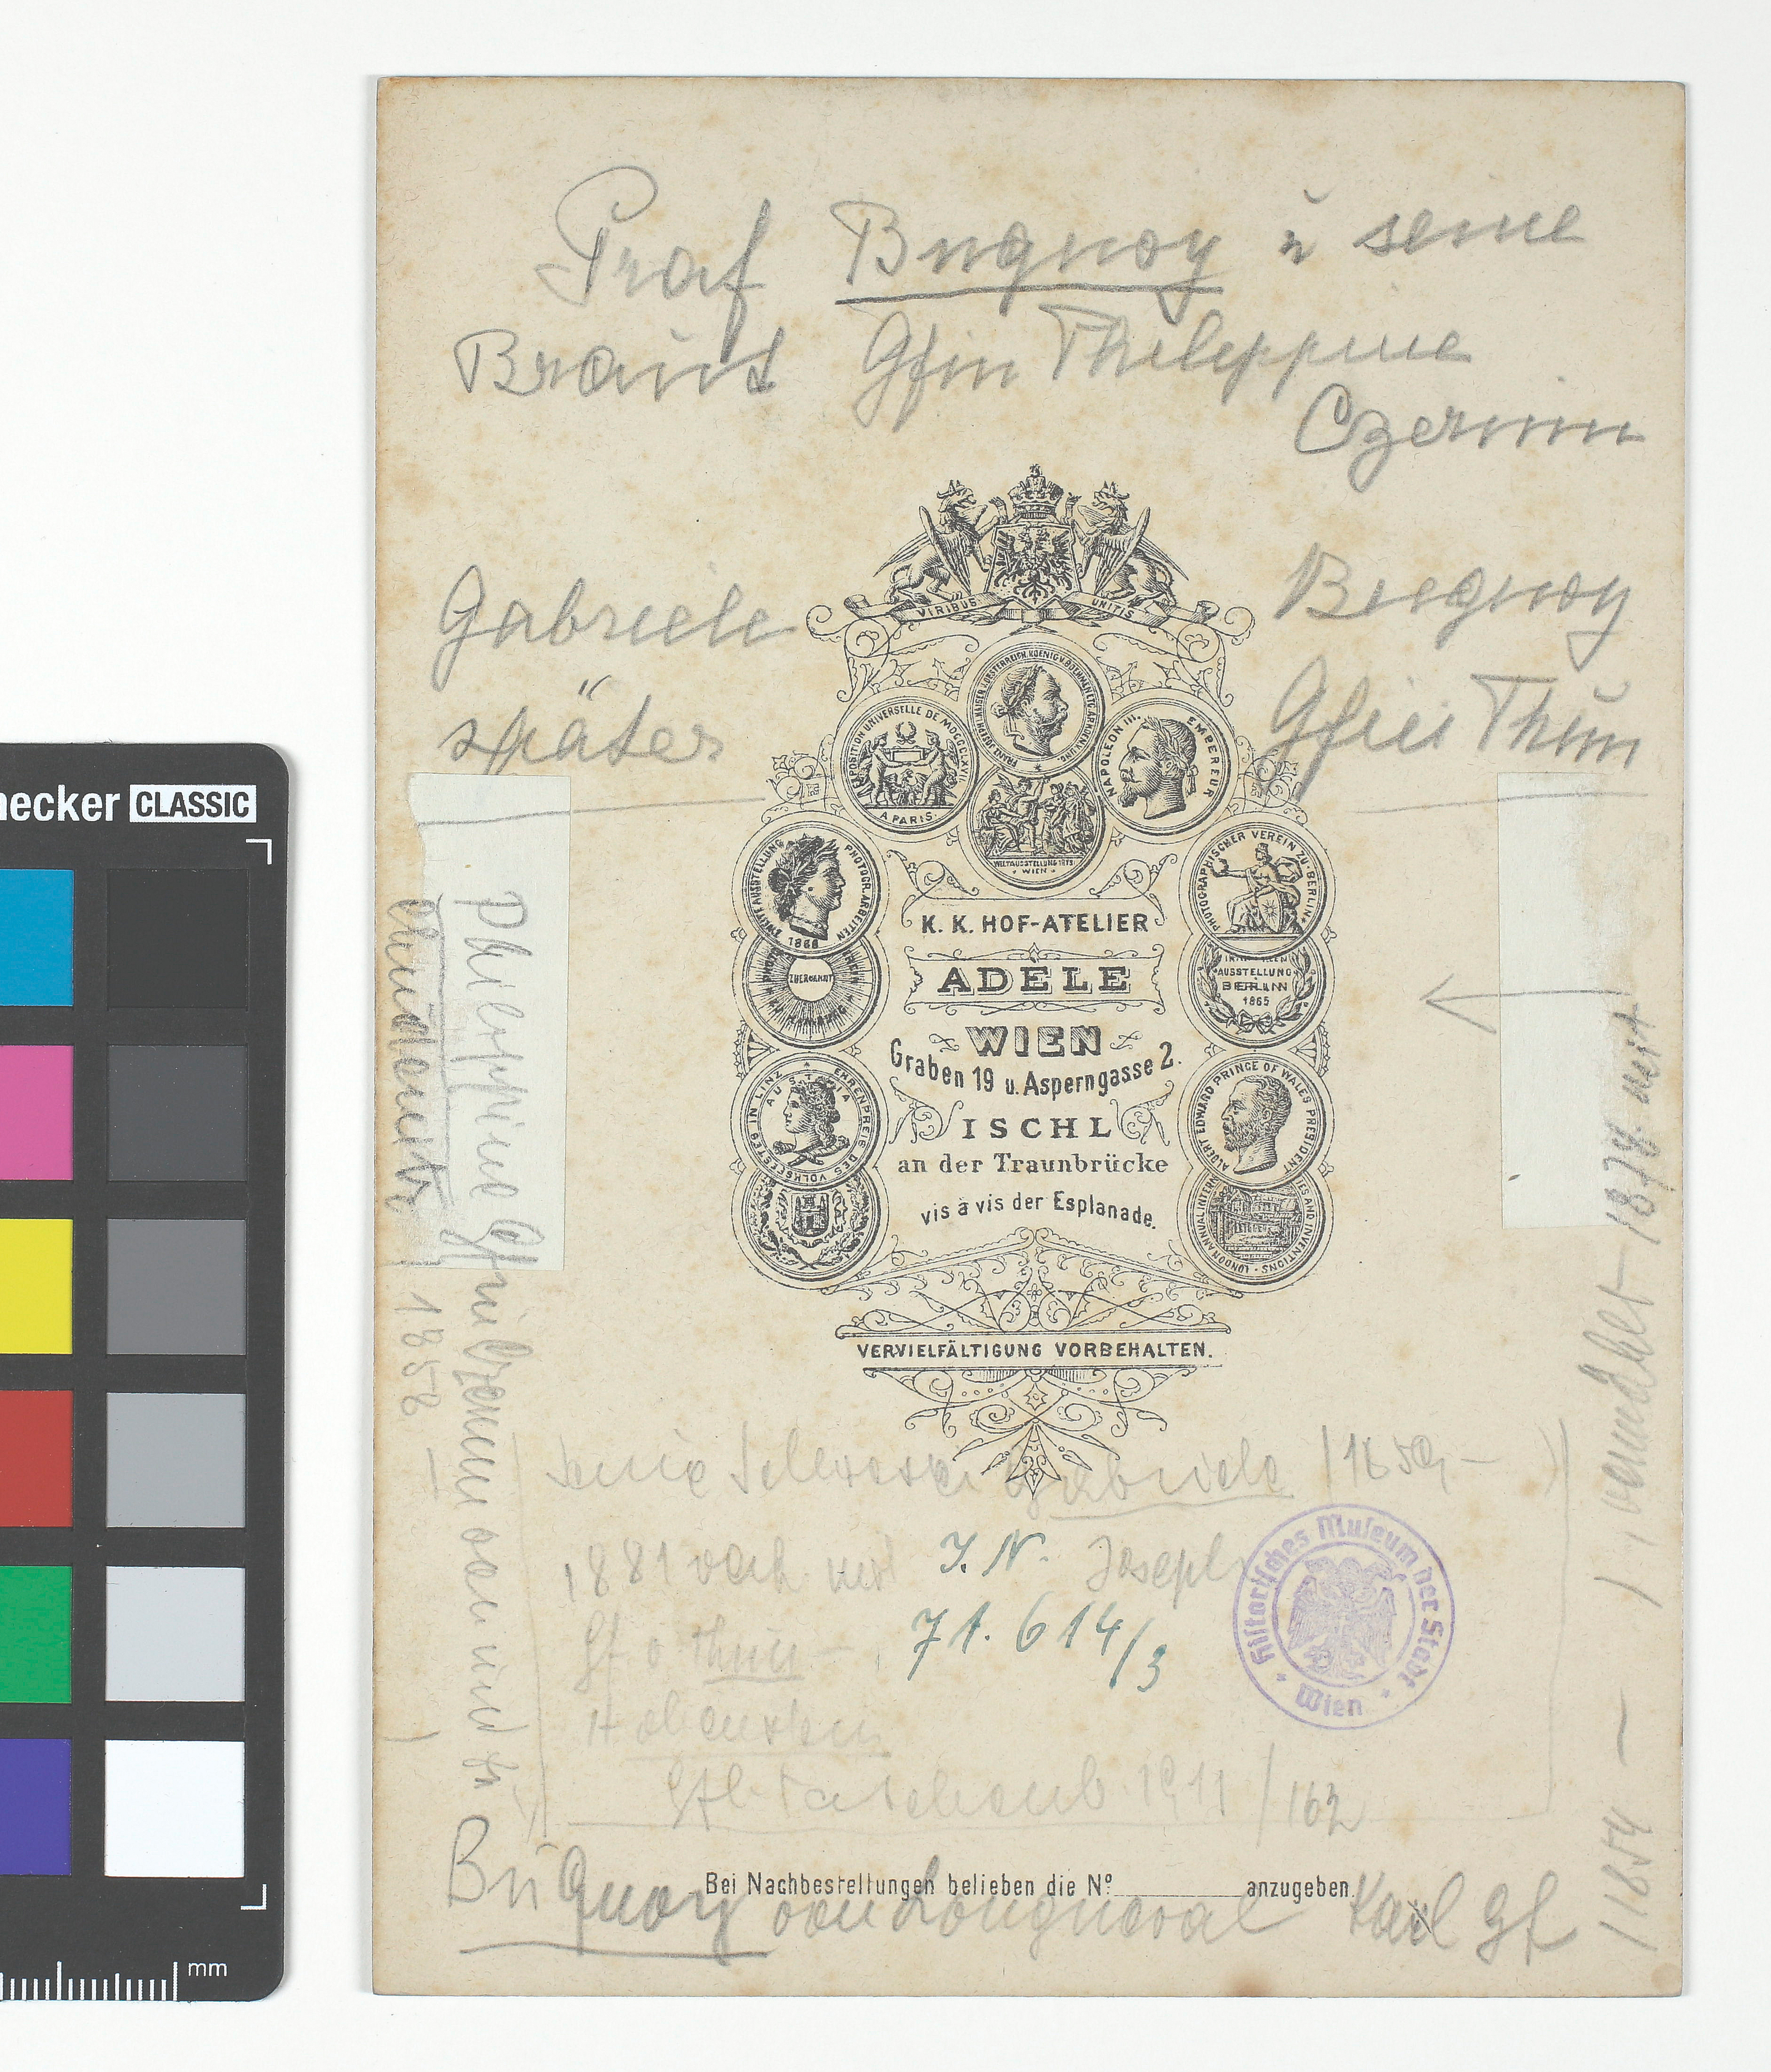 Graf Buquoy u seine
Braut Gfin Philippine
Czernin
Gabriele Buquoy
später Gfin Thun
VIRIBUS UNITIS
EXPOSITION UNIVERSELLE DE MDCCCLXVII
A PARIS
NAPOLEON III. EMPEREUR
WELTAUSSTELLUNG 1873
WIEN
ZWEITE AUSSTELLUNG PHOTOGR. ARBEITEN
1868
PHOTOGRAPHISCHER VEREIN ZU BERLIN
AUSSTELLUNG
BERLIN
1865
EHRENPREIS DES VOLKSFESTES IN LINZ
AUSTRIA
ALBERT EDWARD PRINCE OF WALES PRESIDENT
K. K. HOF-ATELIER
ADELE
WIEN
Graben 19 u. Asperngasse 2.
ISCHL
an der Traunbrücke
vis à vis der Esplanade.
VERVIELFÄLTIGUNG VORBEHALTEN.
seine Schwester Gabriele /1859 –
1881 verh. mit Joseph
Gf v Thun –
Hohenstein
Gfl Taschenb. 1911 / 162
I. N.
71.614/3
Historisches Museum der Stadt Wien
Bei Nachbestellungen belieben die Nº anzugeben.
Buquoy von Longueval Karl Gf
/1854 – / vermählt 1878 mit
Philippine Gfin Czernin von und zu
Chudenitz / 1858 –
hecker CLASSIC
mm